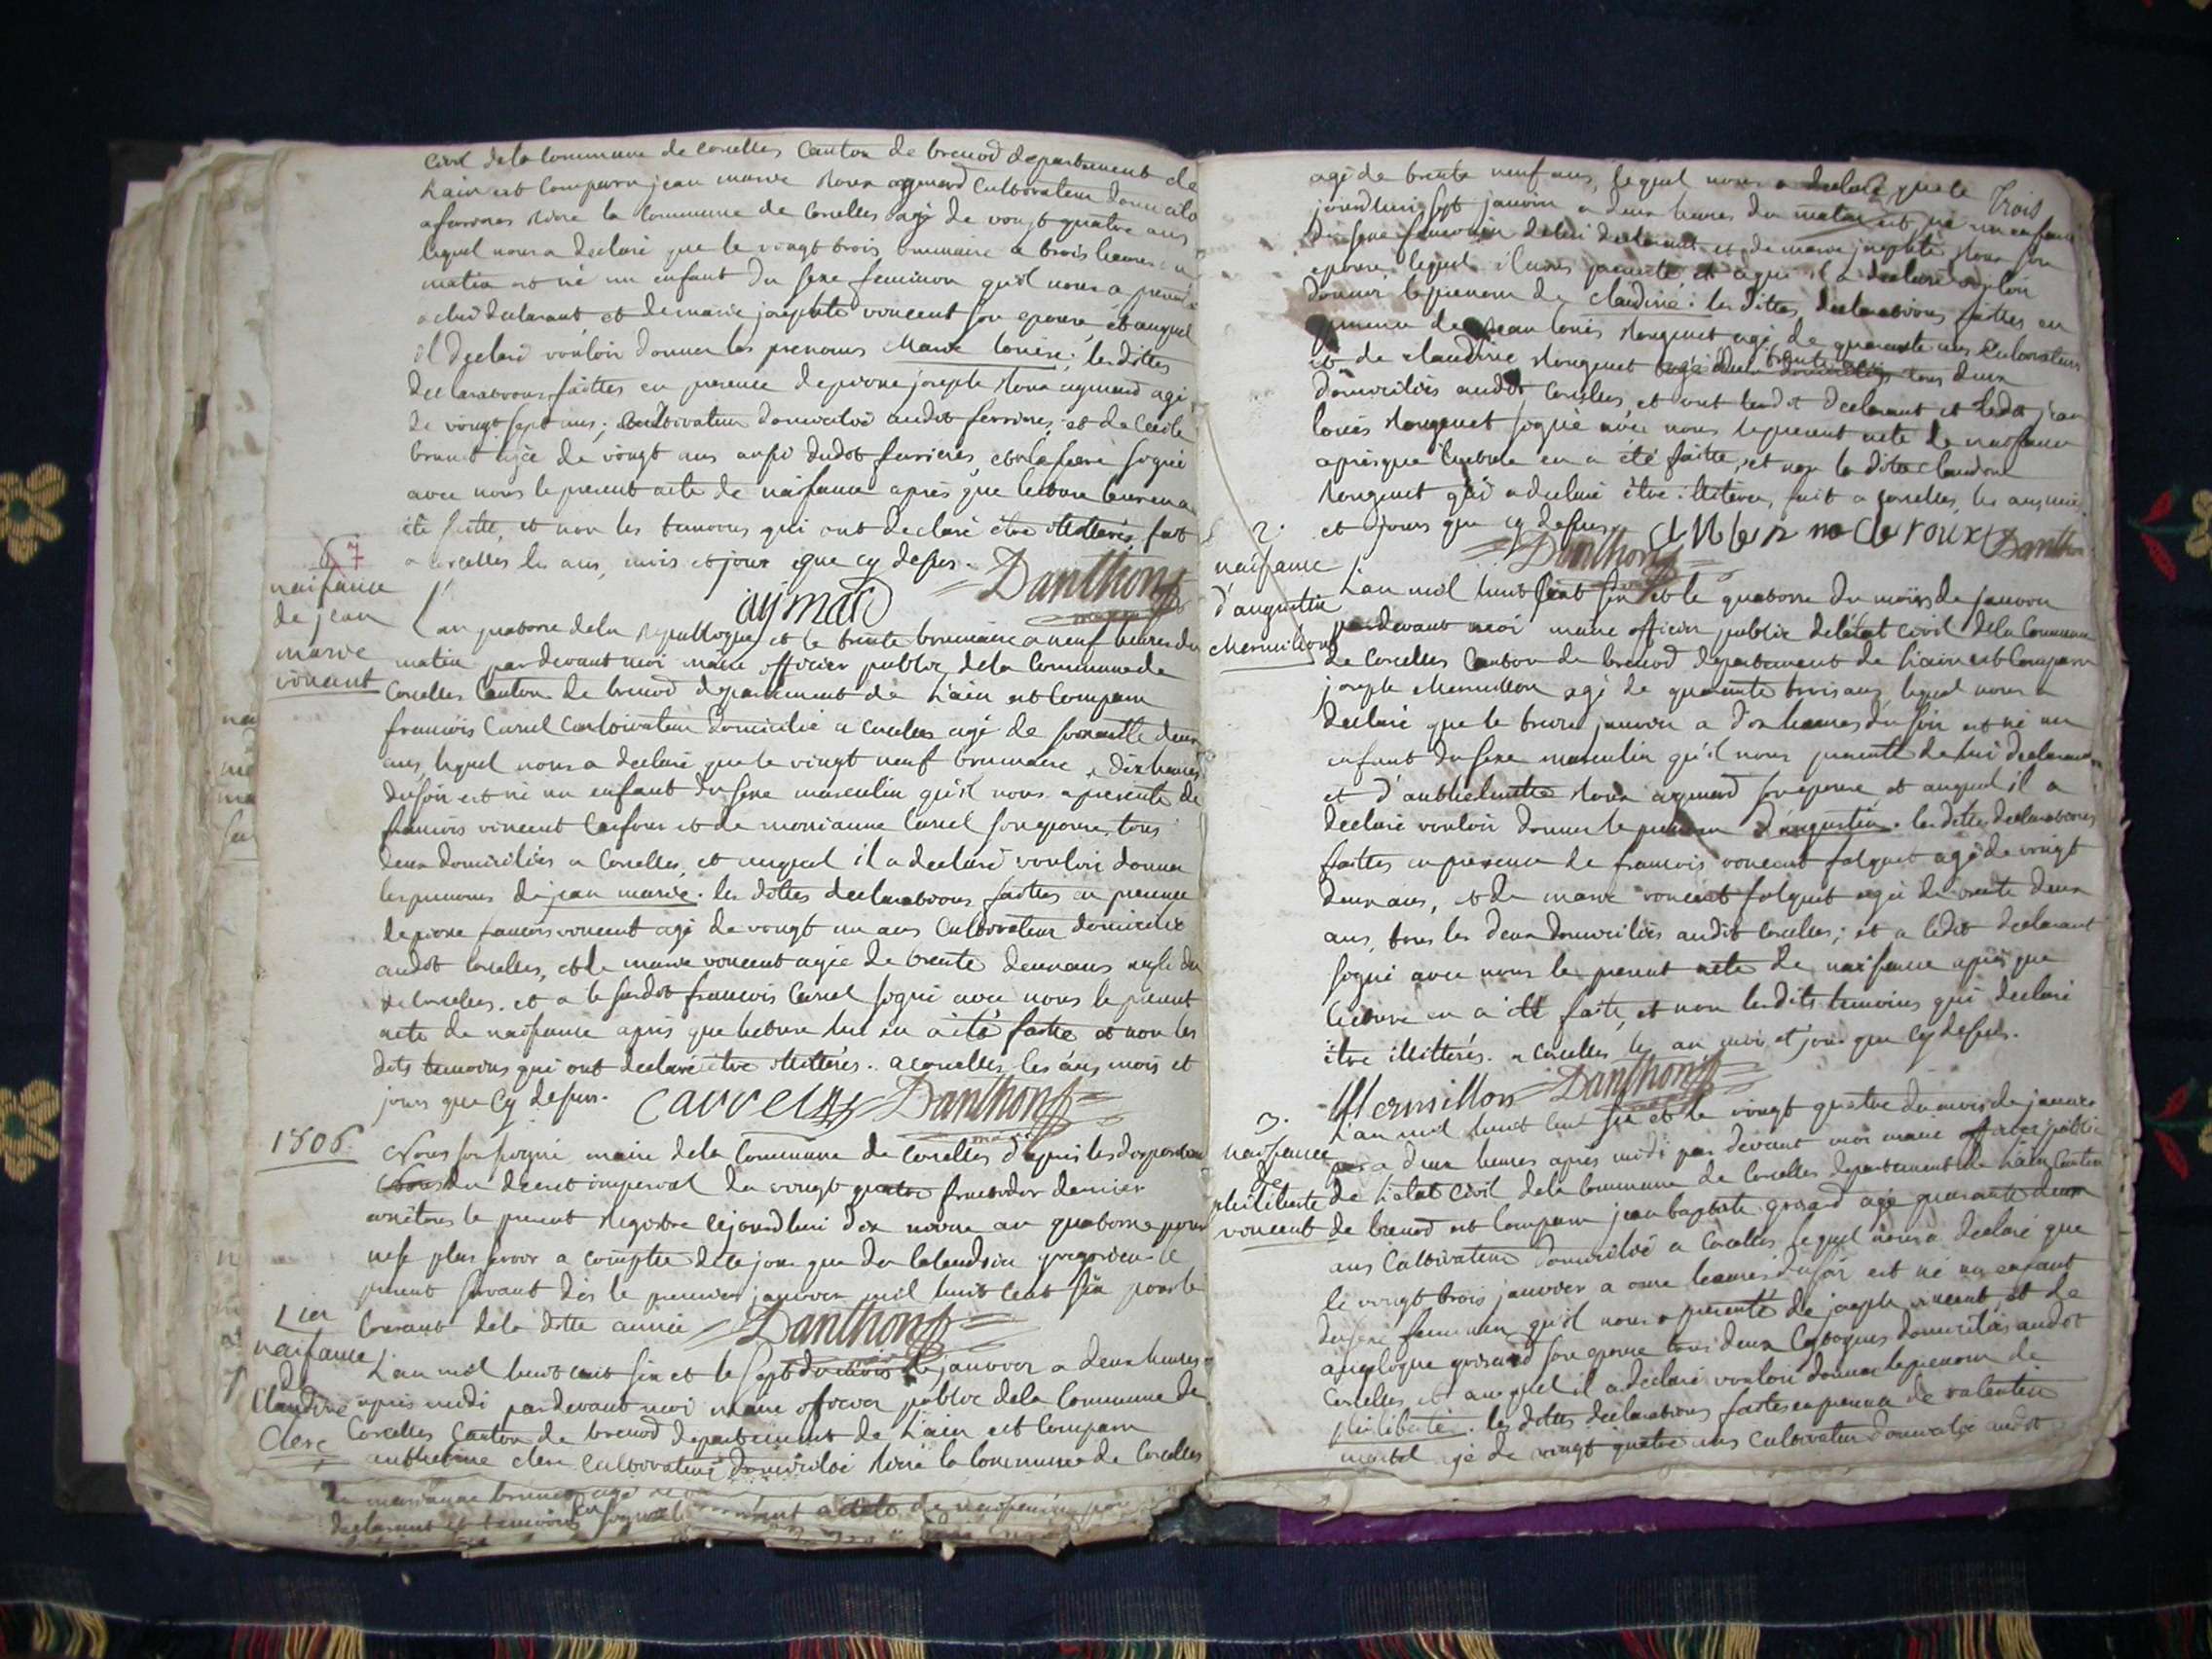 civil dela Commune de Corcelles Canton de brenod departement de
Lain est Comparu jean marie Roux aymard Cultivateur domicilie
a ferrieres riere la Commune de Corcelles agé de vingt quatre ans
lequel nous a declaré que le vingt trois brumaire a trois heures
matin est né un enfant du sexe feminin qu'il nous a presenté
de lui declarant et de marie josephte vincent son epouse, et auquel
il declaré vouloir donner les prenoms Marie louise; les dittes
declarations faittes en presence de pierre joseph Roux aymard agé
de vingt sept ans, Cultivateur domicilié audit ferrieres, et de Cecile
brunet agée de vingt ans aussi dudit ferrieres, signé
avec nous le present acte de naissance après que lecture leur en a
été faitte, et non les temoins qui ont declaré être illitterés, fait
a Corcelles les ans, mois et jour que cy dessus.
aymard Danthon
maire
7
naissance
de jean
marie
vincent
L'an quatorze dela republlique et le trente brumaire a neuf heures du
matin pardevant moi maire officier public dela Commune de
Corcelles Canton de brenod departement de Lain est Comparu
francois Carrel Cultivateur domicilié a Corcelles agé de soixante deux
ans, lequel nous a declaré que le vingt neuf brumaire a dix heures
du soir est né un enfant du sexe masculin qu'il nous a presenté de
francois vincent et de marianne Carrel son epouse, tous
deux domiciliés a Corcelles, et auquel il a declaré vouloir donner
les prenoms de jean marie. les dittes declarations faittes en presence
de pierre francois vincent agé de vingt un ans Cultivateur domicilié
audit Corcelles, et de marie vincent agée de trente deux ans
de Corcelles. et a le susdit francois Carrel signé avec nous le present
acte de naissance après que lecture lui en a été faitte et non les
dits temoins qui ont declaré être illitterés. a Corcelles les ans, mois et
jours que cy dessus. Carrel Danthon
maire
1806.
Nous soussigné maire dela Commune de Corcelles d'après les dispositions
du decret imperial du vingt quatre fructidor dernier
arrêtons le present Registre cejourdhui dix nivose an quatorze pour
ne plus servir a compter de ce jour que du Calendrier gregorien le
present servant dès le premier janvier mil huit cent six pour le
Courant dela ditte année Danthon
1er
naissance
de
Claudine
Clerc
L'an mil huit cent six et le sept du mois de janvier a deux heures
après midi pardevant moi maire officier public dela Commune de
Corcelles Canton de brenod departement de Lain est Comparu
anthelme clerc Cultivateur domicilié riere la Commune de Corcelles
Trois
agé de trente neuf ans, lequel nous a declaré que le
jourdhui sept janvier a deux heures du matin est né un enfant
du sexe feminin de lui declarant et de marie josephte Roux son
epouse, lequel il nous presenté, et a qui il a declaré vouloir
donner le prenom de claudine: les dittes declarations faittes en
presence de jean louis Rougenet agé de quarante ans Cultivateur
et de claudine Rougenet agé de trente tous deux
domiciliés audit Corcelles, et ont ledit declarant et ledit jean
louis Rougenet signé avec nous le present acte de naissance
après que lecture en a été faitte, et non la ditte claudine
Rougenet qui a declaré être illiterée, fait a Corcelles, les an, mois
et jours que cy dessus.
Danthon Danthon
2.
naissance
d'augustin
Mermillon
L'an mil huit Cent six et le quatorze du mois de janvier
pardevant moi maire officier public de letat civil dela Commune
de Corcelles Canton de brenod departement de Lain est Comparu
joseph Mermillon agé de quarante trois ans, lequel nous a
declaré que le treize janvier a dix heures du soir est né un
enfant du sexe masculin qu'il nous presenté de lui declarant
et d'anthelmette Roux aymard son epouse, et auquel il a
declaré vouloir donner le prenom d'augustin. les dittes declarations
faittes en presence de francois vincent falquet agé de vingt
deux ans, et de marie vincent falquet agée de trente deux
ans, tous les deux domiciliés audit Corcelles; et a ledit declarant
signé avec nous le present acte de naissance après que
lecture en a été faitte, et non lesdits temoins qui declaré
être illitterés. a Corcelles les an mois et jour que cy dessus.
Mermillon Danthon
3.
naissance
de
philiberte
vincent
L'an mil huit Cent six et le vingt quatre du mois de janvier
a deux heures après midi par devant moi maire officier public
de l'etat civil dela Commune de Corcelles departement de Lain Canton
de brenod est Comparu jean baptiste grisard agé quarante deux
ans Cultivateur domicilié a Corcelles lequel nous a declaré que
le vingt trois janvier a onze heures du soir est né un enfant
du sexe feminin qu'il nous a presenté de joseph vincent, et de
angelique grisard son epouse tous deux domiciliés audit
Corcelles et auquel il a declaré vouloir donner le prenom de
philiberte. les dittes declarations faites en presence de valentin
martel agé de vingt quatre ans Cultivateur domicilié audit